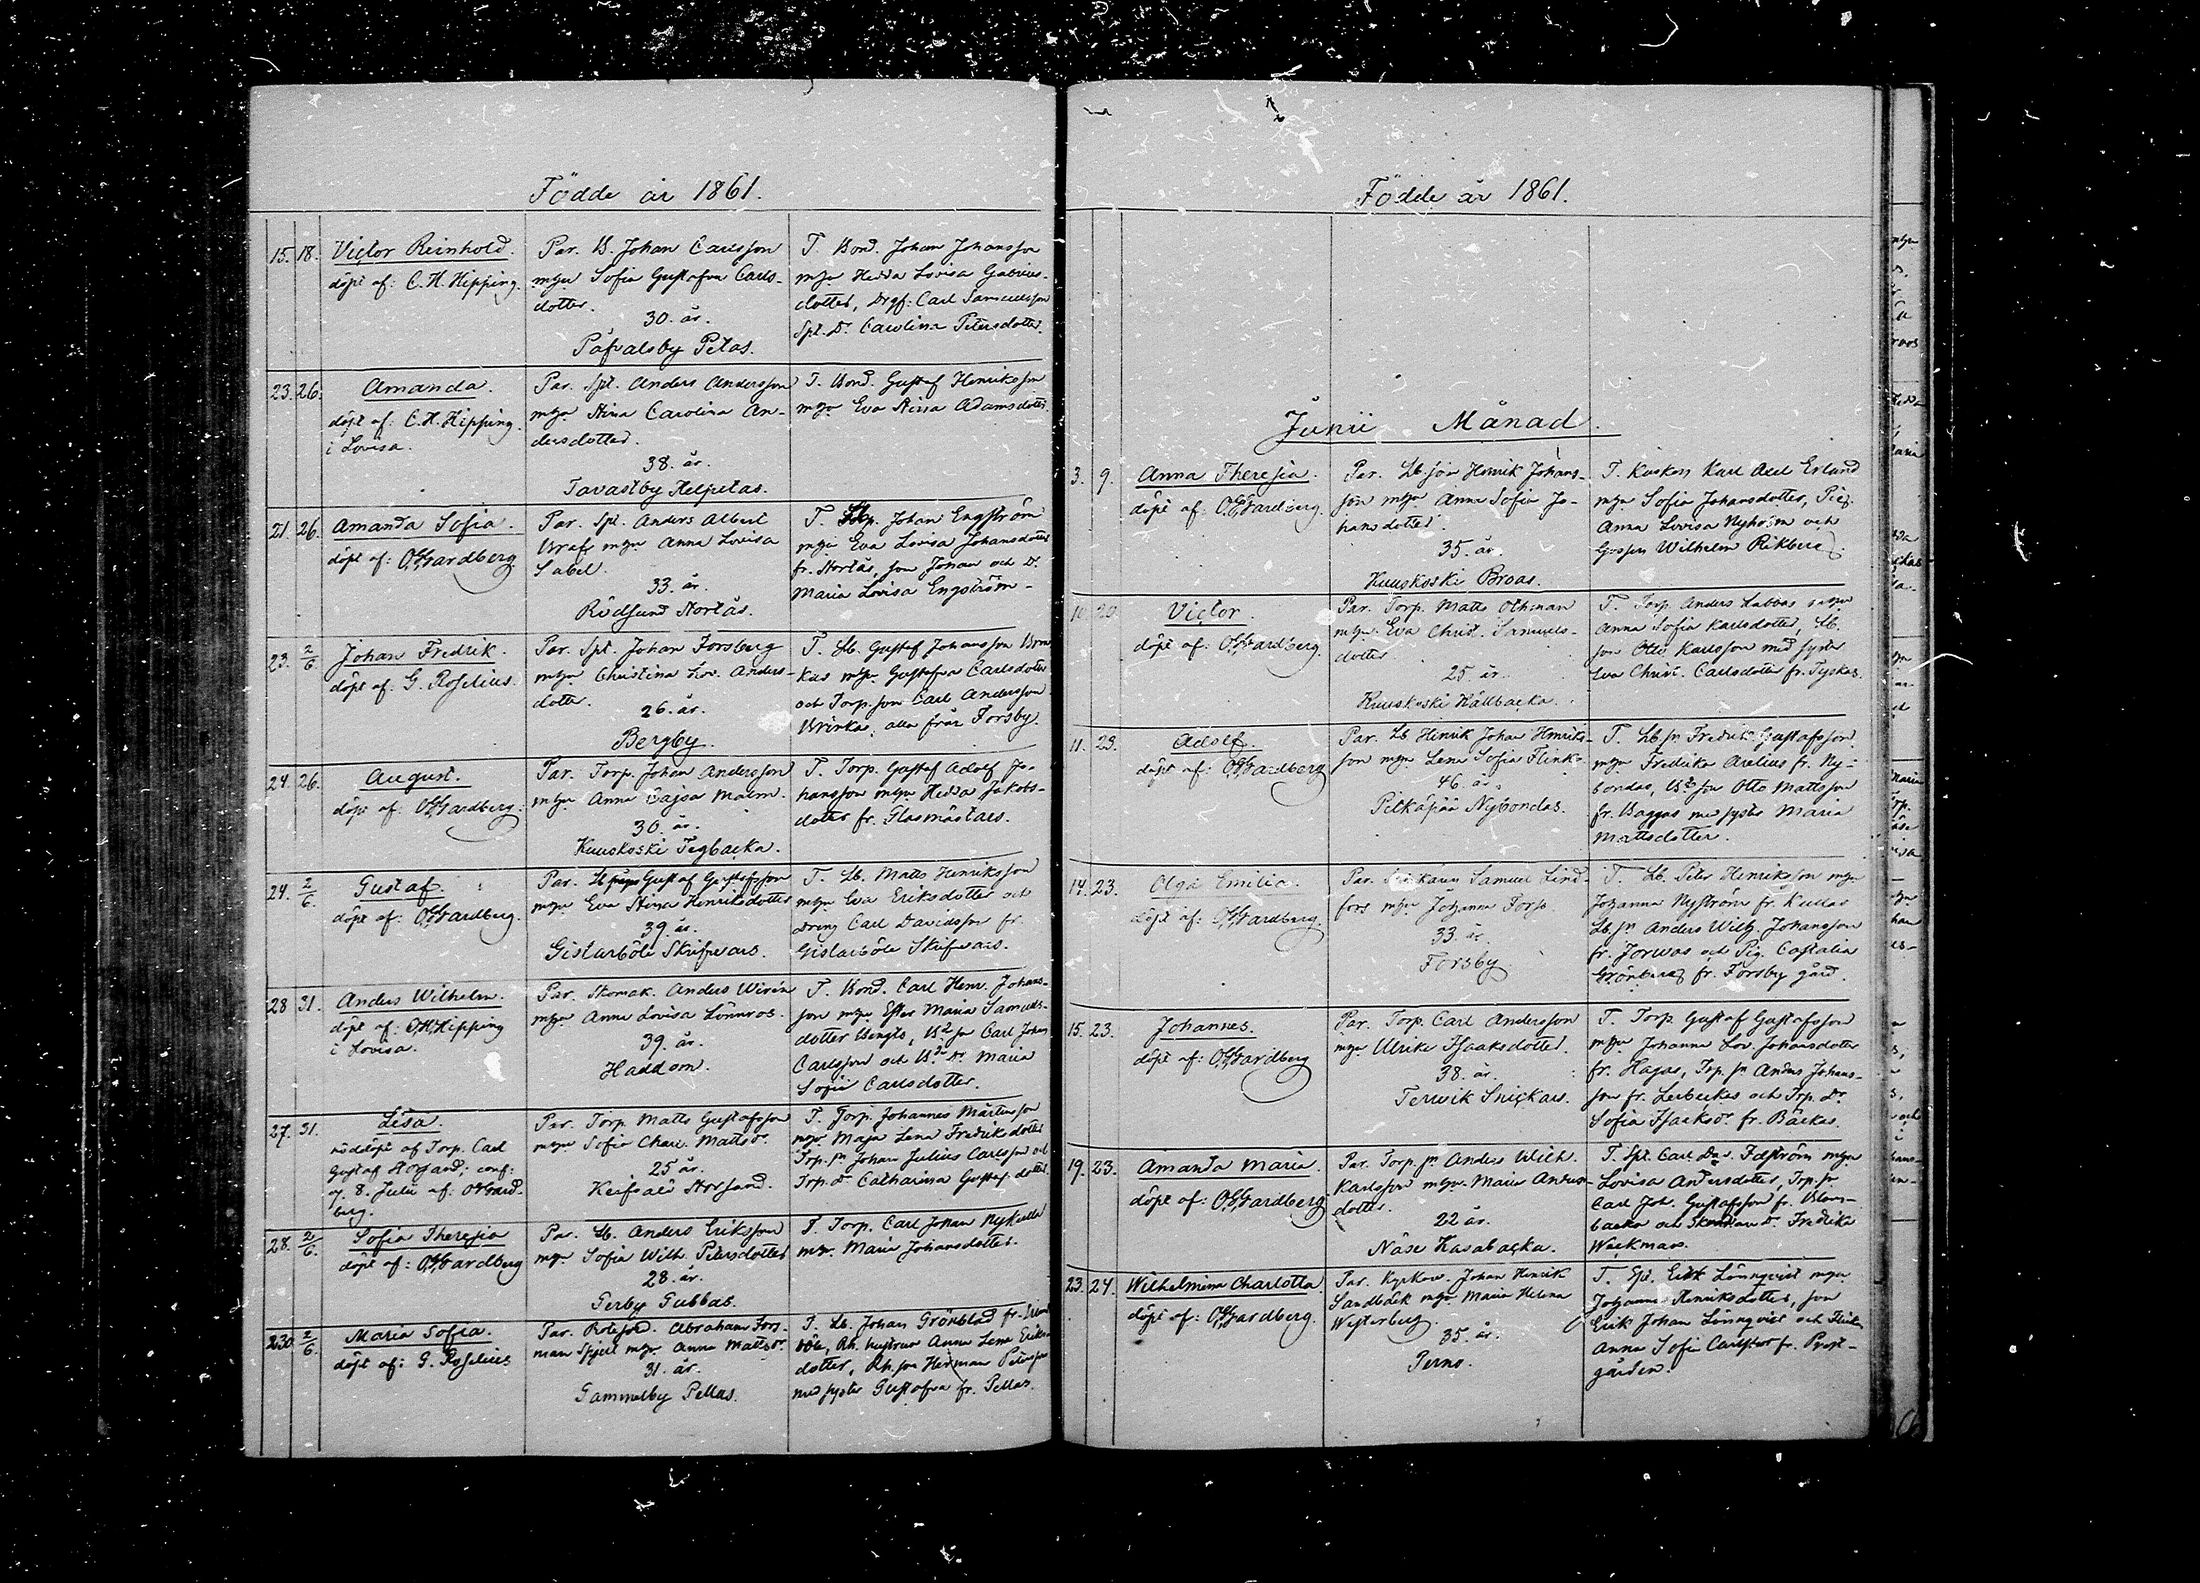 Födde år 1861.
15. 18. Victor Reinhold.
döpt af: C. H. Hipping.
Par. B. Johan Carlsson
m/hu Sofia Gustafva Carls-
dotter.
30. år.
Påvalsby Petas.
T. Bond. Johan Johansson
m/hu Hedda Lovisa Gabriels-
dotter, Drgf: Carl Samuelsson
Spt. Dr Carolina Petersdotter.
23. 26. Amanda.
döpt af: C. H. Hipping.
i Lovisa.
Par. Spt. Anders Andersson
m/hu Stina Carolina An-
dersdotter.
38. år.
Tavastby Helpetas.
T. Bond. Gustaf Henriksson
m/hu Eva Stina Adamsdotter
21. 26. Amanda Sofia.
döpt af: O. G. Gardberg.
Par. Spt. Anders Albert
m/hu Anna Lovisa
Sabel.
33. år.
Rödsund Nortås.
T. Johan Engström
m/hu Eva Lovisa Johansdotter
fr. Nortås, son Johan och Dr
Maria Lovisa Engström-
23. 2/6 Johan Fredrik.
döpt af: G. Roselius.
Par. Spt. Johan Forsberg
m/hu Christina Lov. Anders-
dotter.
26. år.
Bergby.
T. Lb. Gustaf Johansson
m/hu Gustafva Carlsdotter
och Torp. son Carl Andersson
Brinkas, alla från Forsby.
24. 26. August.
döpt af: O. G. Gardberg.
Par. Torp. Johan Andersson
m/hu Anna Cajsa Malm.
30. år.
Kuuskoski Tegbacka.
T. Torp. Gustaf Adolf Jo-
hansson m/hu Hedda Jakobs-
dotter fr. Glasmästars.
24. 2/6. Gustaf.
döpt af: O. G. Gardberg.
Par. Lb Gustaf Gustafsson
m/hu Eva Stina Henriksdotter
39. år.
Gislarböle Skrifvars.
T. Lb. Matts Henriksson
m/hu Eva Eriksdotter och
Dreng Carl Davidsson fr.
Gislarböle Skrifvars.
28 31. Anders Wilhelm.
döpt af: C. H. Hipping
i Lovisa.
Par. Skomak. Anders Wirén
m/hu Anna Lovisa Lönnros.
39. år.
Haddom.
T. Bond. Carl Henr. Johans-
son m/hu Ester Maria Samuels-
dotter Bengts, Bde son Carl Johan
Carlsson och Bde Dr Maria
Sofia Carlsdotter.
27. 31. Lisa.
nöddöpt af Torp. Carl
Gustaf Storsand; conf:
af 8. Julii af: O. G. Gard-
berg.
Par. Torp. Matts Gustafsson
m/hu Sofia Charl. Mattsdr.
25 år.
Keifsalö Storsand.
T. Torp. Johannes Mårtensson
m/hu Maja Lena Fredriksdotter
Torp. sn Johan Julius Carlsson och
Torp. dr Catharina Gustafsdotter.
28. 2/6. Sofia Theresia
döpt af: O. G. Gardberg
Par. Lb. Anders Eriksson
m/hu Sofia Wilh. Petersdotter
28. år.
Perby Pubbas.
T. Torp. Carl Johan Nykulla
m/hu Maria Johansdotter.
2/6. Maria Sofia.
döpt af: G. Roselius
Par. Abraham Fors-
man Spjut m/hu Anna Mattsdr.
31. år.
Gammelby Pellas.
T. Lb. Johan Grönblad fr.
böle, Rh. hustrun Anna Lena Eriks-
dotter, Rh. son Herman Petersson
med syster Gustafva fr. Pellas.
Födde år 1861.
Junii Månad.
3. 9. Anna Theresia.
döpt af: O. G. Gardberg.
Par. Lb. son Henrik Johans-
son m/hu Anna Sofia Jo-
hansdotter.
35. år.
Kuuskoski Broas.
T. Kusken Karl Axel Erland
m/hu Sofia Johansdotter, Pig.
Anna Lovisa Nyholm och
Gossen Wilhelm Rikberg.
10 20. Victor.
döpt af: O. G. Gardberg.
Par. Torp. Matts Othman
m/hu Eva Christ. Samuels-
dotter
25. år.
Kuuskoski Källbacka.
T. Torp. Anders Labbas m/hu
Anna Sofia Karlsdotter, Lb.
son Otto Karlsson med syster
Eva Christ. Carlsdotter fr. Tyskas.
11. 23. Adolf.
döpt af: O. G. Gardberg
Par. Lb Henrik Johan Henriks-
son m/hu Lena Sofia Flink-
46. år.
Pitkäpää Nybondas.
T. Lb sn Fredrik Gustafsson
m/hu Fredrika Arelius fr. Ny-
bondas, Bde son Otto Mattsson
fr. Baggas med syster Maria
Mattsdotter.
14. 23. Olga Emilia.
döpt af: O. G. Gardberg.
Par. Snickaren Samuel Lind-
fors m/hu Johanna Forss
33. år.
Forsby.
T. Lb. Peter Henriksson m/hu
Johanna Nyström fr. Kullas
Lb. sn Anders Wilh. Johansson
fr. Jorwas och Pig. Castalia
Grönberg fr. Forsby gård.
15. 23. Johannes.
döpt af: O. G. Gardberg
Par. Torp. Carl Andersson
m/hu Ulrika Isaaksdotter.
38. år.
Terwik Snickars.
T. Torp. Gustaf Gustafsson
m/hu Johanna Lov. Johansdotter
fr. Hagas, Trp. sn Anders Johans-
son fr. Lerbeckas och Trp. Dr
Sofia Isaksdr. fr. Bäckas.
19. 23. Amanda Maria.
döpt af: O. G. Gardberg
Par. Torp. sn Anders Wilh.
Karlsson m/hu Maria Anders-
dotter.
22 år.
Näse Kasabacka.
T. Spt. Carl Dav. Fagström m/hu
Lovisa Andersdotter, Trp. sn
Carl Joh. Gustafsson fr. Blom-
backa och Dr. Fredrika
Weckman.
23. 24. Wilhelmina Charlotta.
döpt af: O. G. Gardberg.
Par. Kyrkov. Johan Henrik
Sandbäck m/hu Maria Helena
Westerberg.
35. år.
Perno.
T. Spt. Erik Lönnqvist m/hu
Johanna Henriksdotter, son
Erik Johan Lönnqvist och Flickan
Anna Sofia Carlsdotter fr. Prest-
gården.